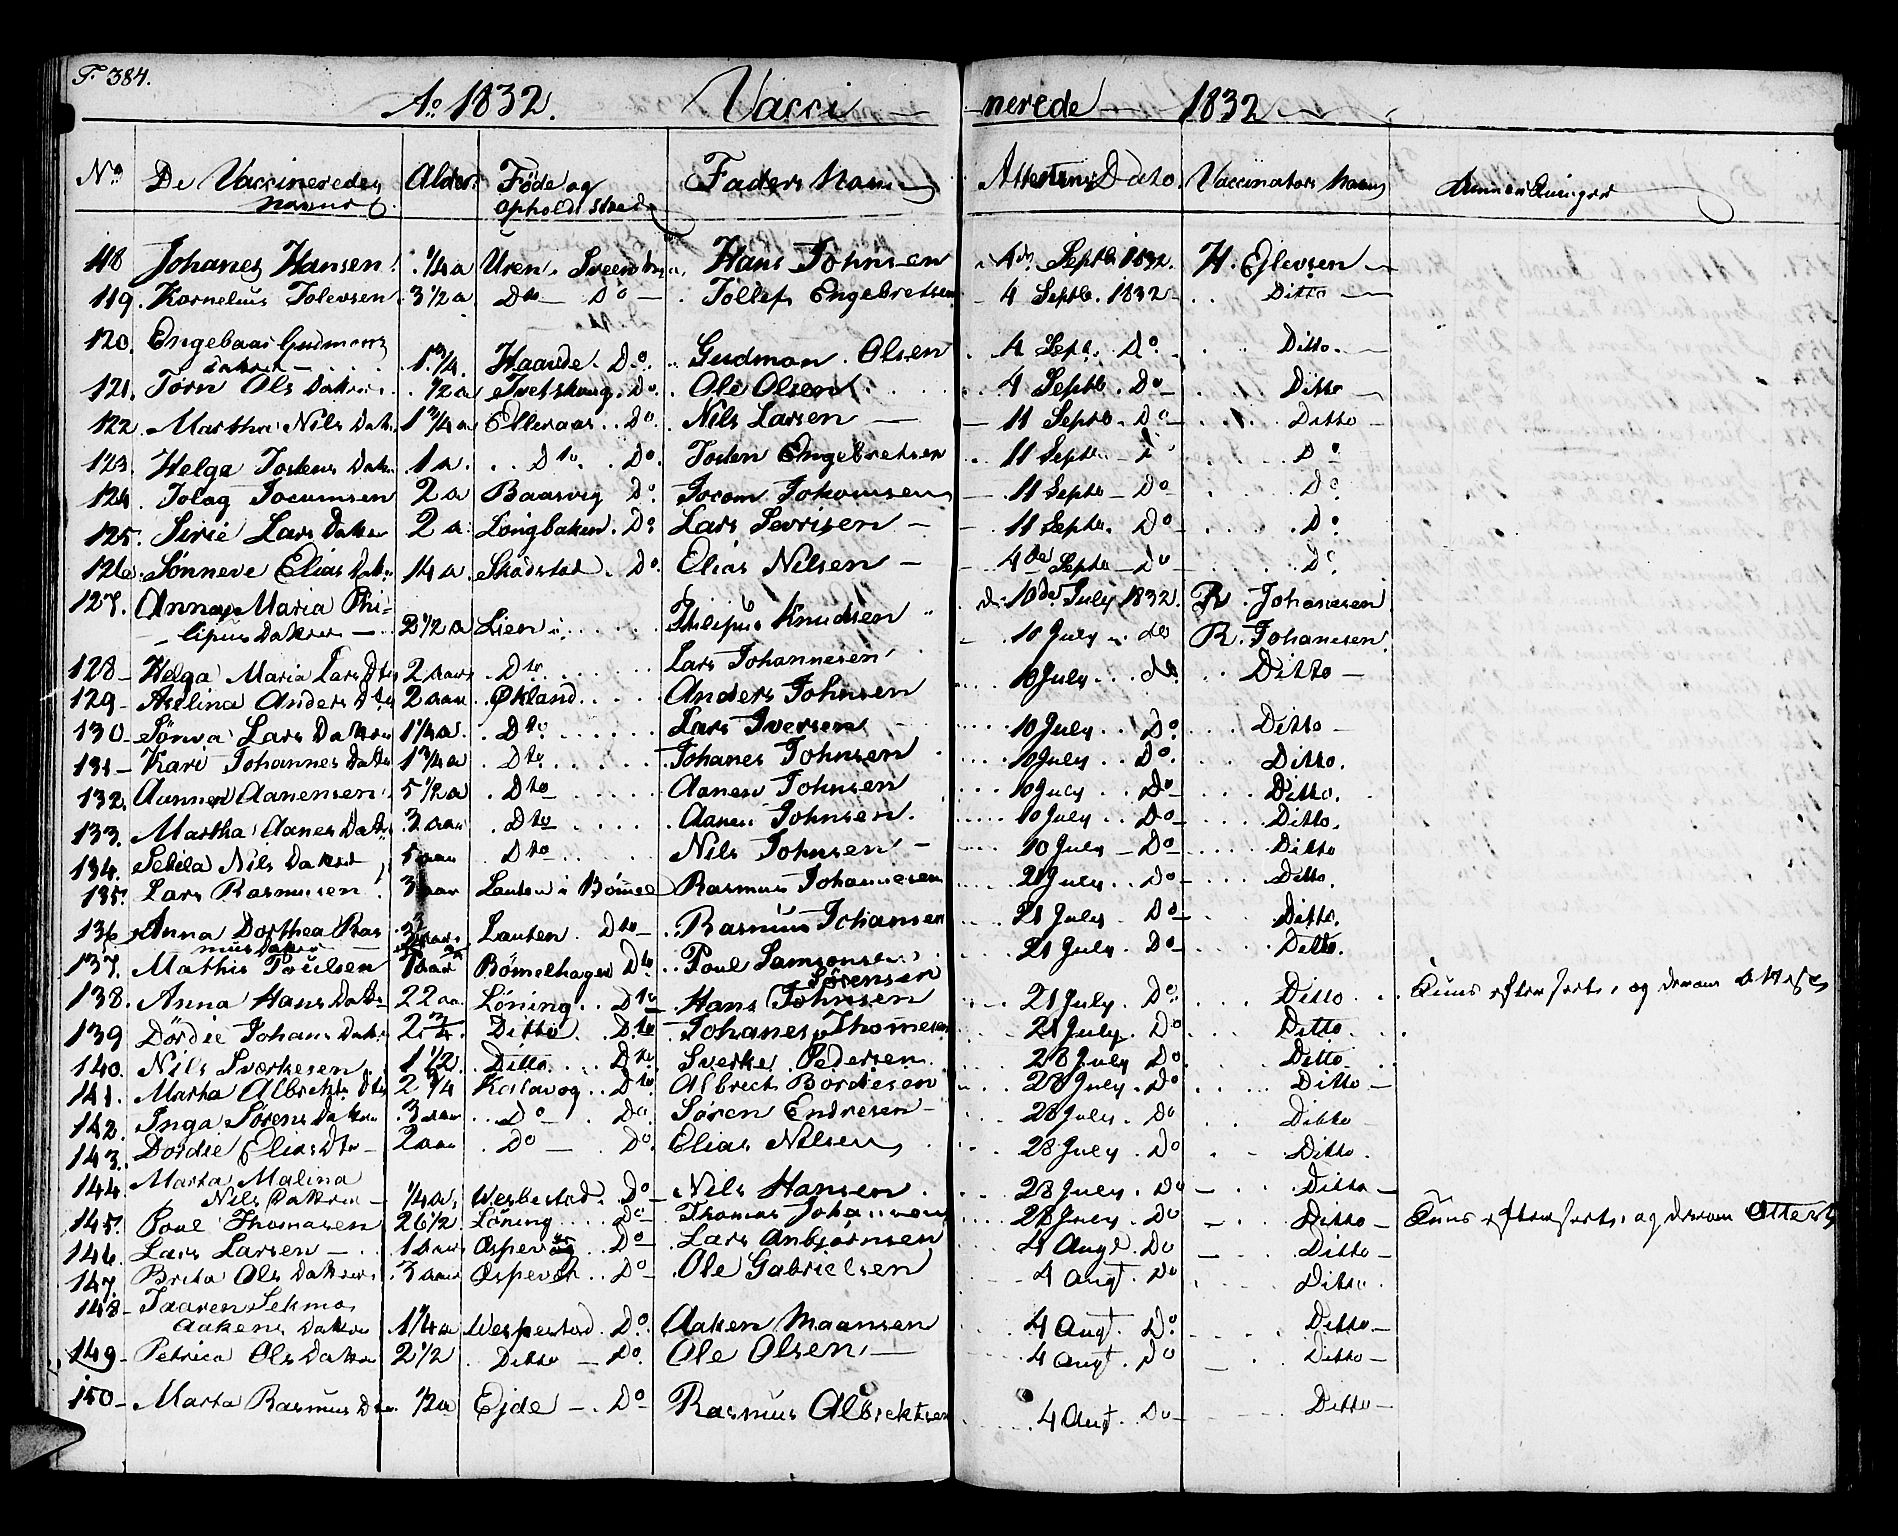 F. 384.
Ao 1832. Vacci — nerede — 1832
No De Vaccineredes Navne Alder. Føde og Opholds Sted Faders Navn Attestens Dato Vaccinators Navn Anmærkninger
118 Johanes Hansen 1/4 a Uren Hans Johnsen 4de Septb 1832. H. Ejlevsen
119. Kornelius Tolevsen 3 1/2 a Dto Do Tollef Engebretsen 4 Septb. 1832 Ditto
120. Engebaar Gudmons Dakter 1 3/4 Haavde Do Gudmon Olsen 4 Sept. Do Ditto.
121. Torn Ols Dakter 1/2 a Tvetskoug Do. Ole Olsen 4 Septb. Do Ditto
122. Martha Nils Dakt 1 3/4 a Elleraas Do. Nils Larsen 11 Septb. Do Ditto
123. Helga Tostens Dak 1 a. Dto. Do. Tosten Engebretsen 11 Septb. Do
124. Tolag Jocumsen 2 a Baasvig Do Jocom 11 Septb Do Do
125. Sirie Lars Dakter 2 a Longbaken. Do Lars Sevrisen 11 Septb. Do Do
126. Sønneve Elias Dak 14 a. Skadstad. Do. Elias Nilsen 4de Septb Do Do
127. Anna Maria Philipus Dakter 2 1/2 a Lien Philipus Knudsen 10de July 1832. R. Johanesen
10 July do R. Johanesen.
128 Helga Maria Lars Dtr 2 aar Dto Lars Johannesen 10 July do Ditto
129 Aselina Anders Dtr 2 aar Økland Anders Johnsen
130 Sønva Lars Dakter 1 1/4 a. Dto Lars Iversen 10 July Do Ditto
131 Kari Johannes Dakter 1 3/4 a Dto Johanes Johnsen 10 July Do. Ditto.
132. Aanensen 5 1/2 a Dto Aanen Johnsen 10 July Do Ditto.
133. Martha Aanes Dakt 3 aar Dto Aanen Johnsen. 10 July Do Ditto.
134. Nils Dakter 5 aar Dto Nils Johnsen 10 July Do Ditto
135. Lars Rasmusen 3 aar Lauten i Bømel Rasmus Johannesen 21 July Do Ditto.
136 Anna Dorthea Rasmus Dakter Lauten Dto Rasmus Johansen 21 July Do Ditto.
137. Mathis Poulsen Bømelhagen Dto Poul Samsonsen 21 July Do Ditto.
Sørensen
138. Anna Hans Dakt 22 aa Løning Dto Hans Johnsen 21 July Do Ditto efter
139 Dordie Johans Dakt 2 3/4. Ditto Dto Johanes Thomesen 21 July Do Ditto
140. Nils Sværkesen 1 1/2 Ditto Dto Sverke Pedersen 28 July Do Ditto
141. Marta Albrekts Dtr 2 3/4 Dto Albrect Bordesen 28 July Do Ditto
142. Inga Sørens Dakter 3 aar Do Do Søren Endresen 28 July Do Ditto
143. Dordie Elias Dtr 2 aar Do Do Elias Nilsen 28 July. Do Ditto.
144. Marta Malina Nils Dakter 1/4 a. Wesbestad. Do Nils Hansen 28 July Do Ditto
145. Poul Thomasen 26 1/2 Løning Do Thomas Johannesen 28 July Do Ditto
146. Lars Larsen 1 aar Espevog Do Lars Anbjørnsen 4 Augt. Do Ditto
147. Brita Ols Dakter 3 aar Do Ole Gabrielsen 4 Augt Do Ditto
148 Taaren Aakens Dakter 1 1/4 a Wespestad. Do. Aaken Maansen 4 Augt. Do. Ditto
149 Petrica Ols Dakter 2 1/2 Ditto Do. Ole Olsen 4 Augt. Do Ditto
150 Marta Rasmus Dtr 1/2 a Ejde Do Rasmus Albrektsen 4 Augt. Do Ditto